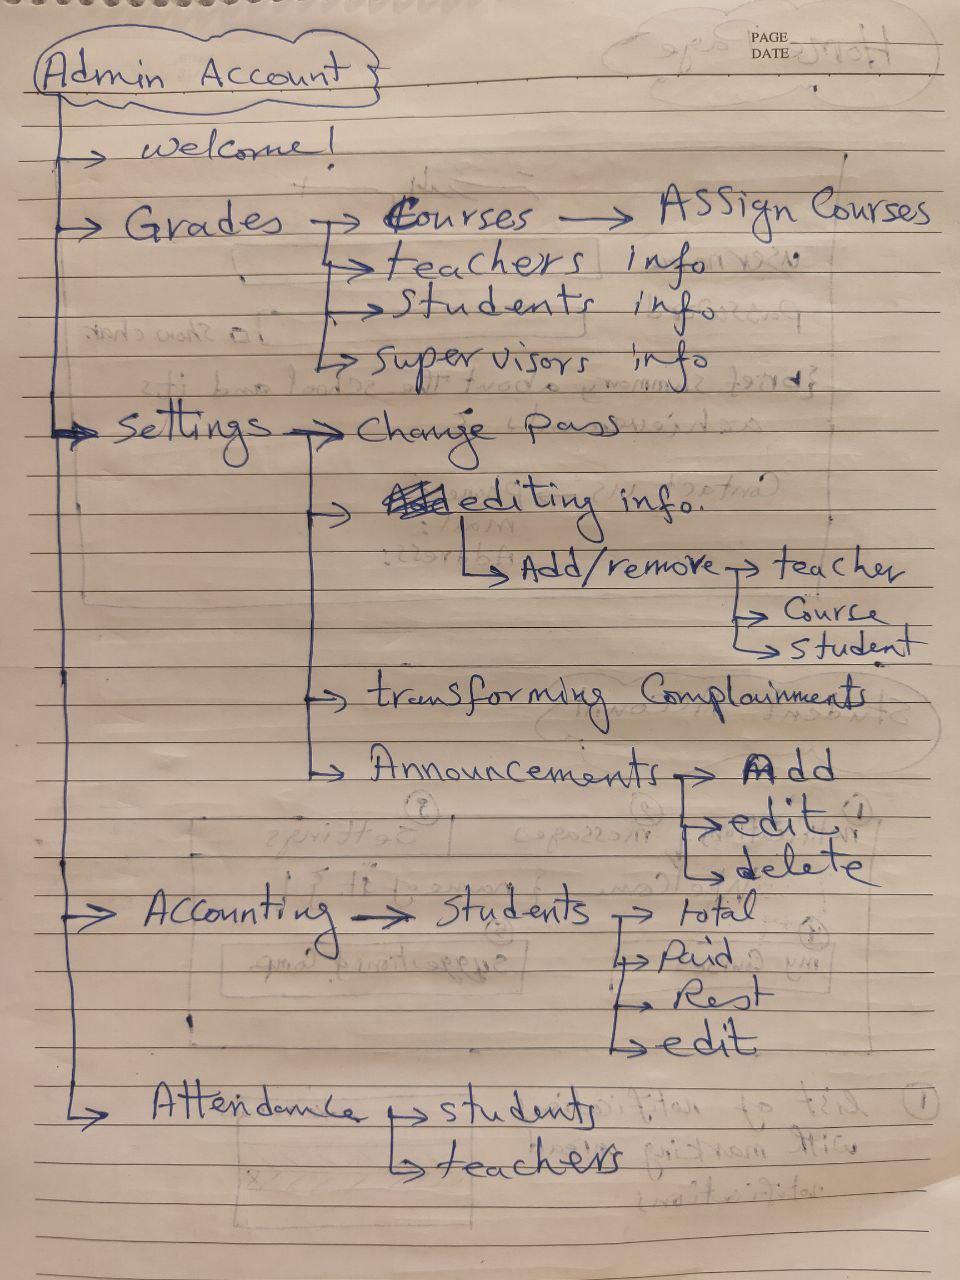 PAGE
DATE
Admin Account
welcome!
Grades → Courses → Assign Courses
→ teachers info
→ students info
→ supervisors info
→ settings → change pass
→ editing info.
→ Add/remove → teacher
→ Course
→ student
→ transforming Complainments
→ Announcements → Add
→ edit
→ delete
→ Accounting → students → total
→ Paid
→ Rest
→ edit
→ Attendance → students
→ teachers